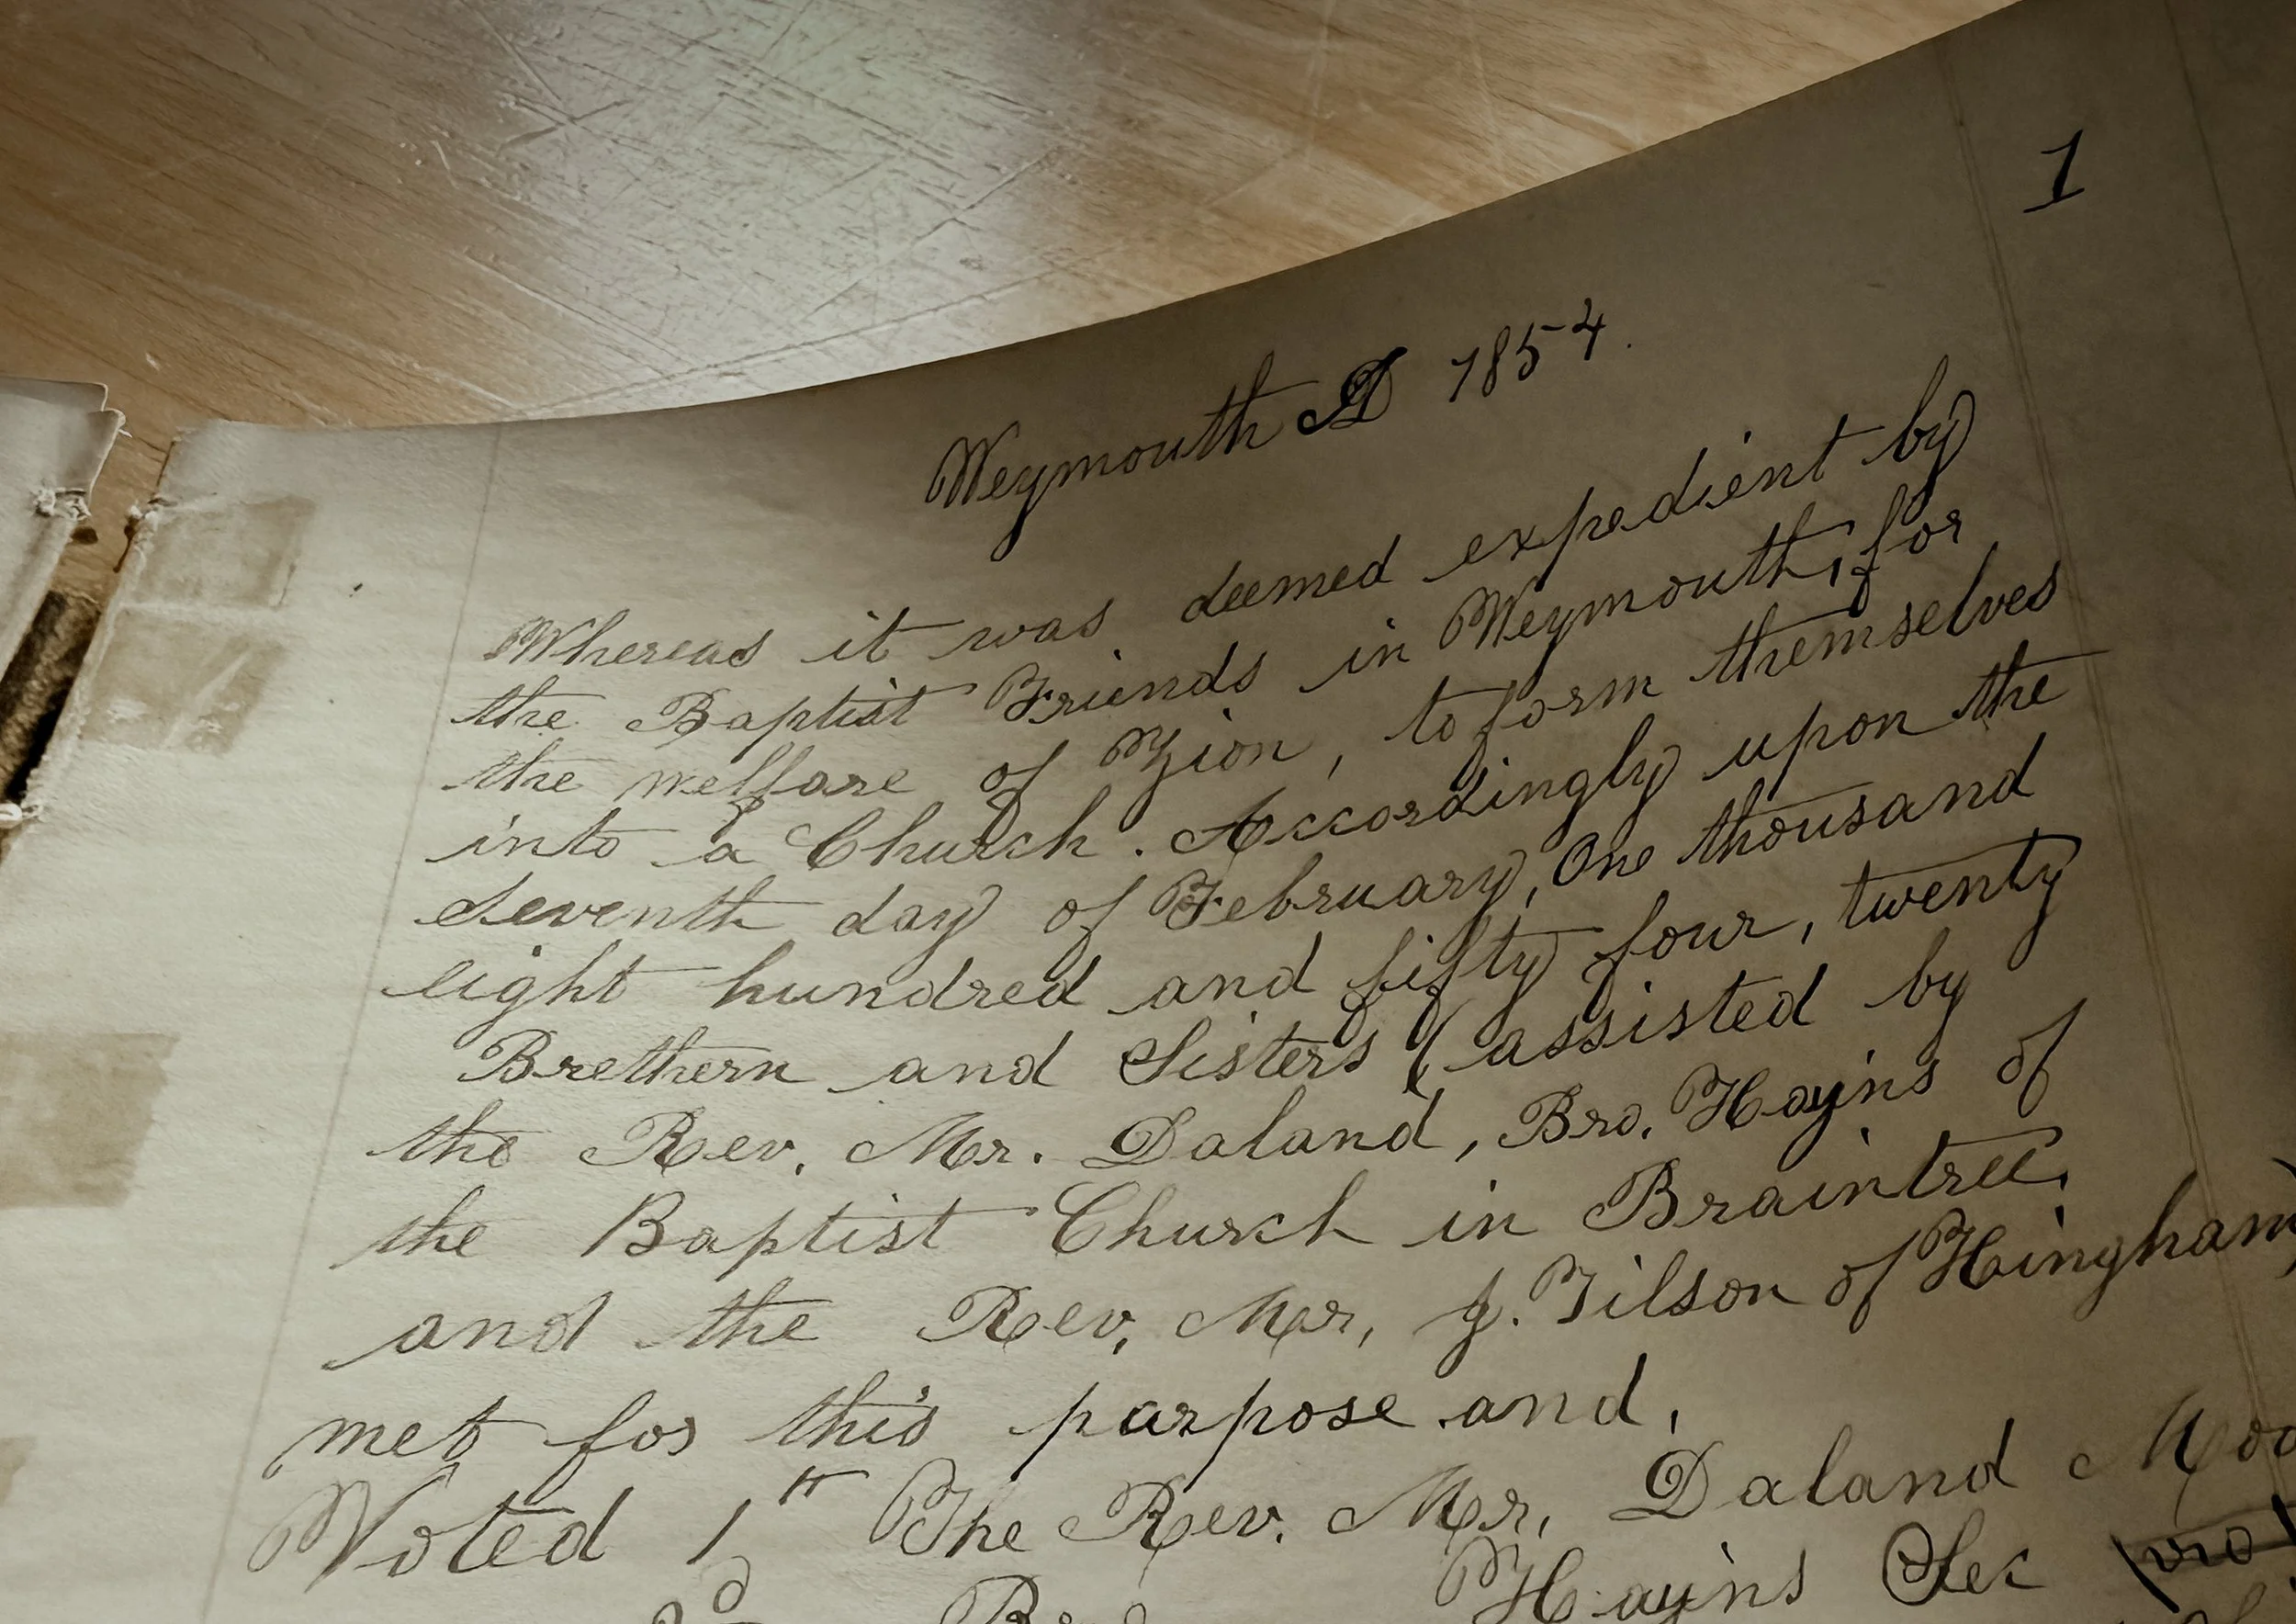 1
Weymouth AD 1854.
Whereas it was deemed expedient by
the Baptist Friends in Weymouth, for
the welfare of Zion, to form themselves
into a Church. Accordingly upon the
Seventh day of February, One thousand
eight hundred and fifty four, twenty
Brethern and Sisters (assisted by
the Rev. Mr. Daland, Bro. Hayins of
the Baptist Church in Braintree,
and the Rev, Mr, J. Tilson of Hingham)
met for this purpose and,
Voted 1st The Rev. Mr, Daland
Hayins Sec